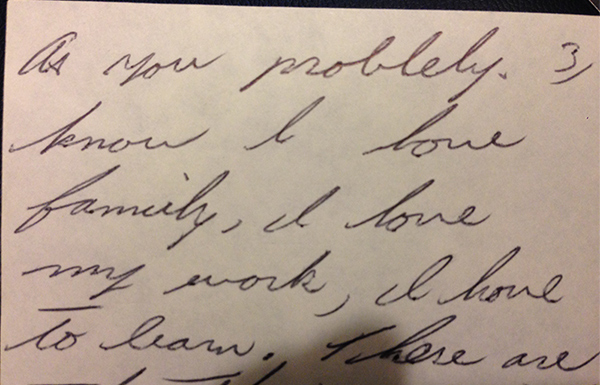 As you problely. 3)
know I love
family, I love
my work, I love
to learn. These are